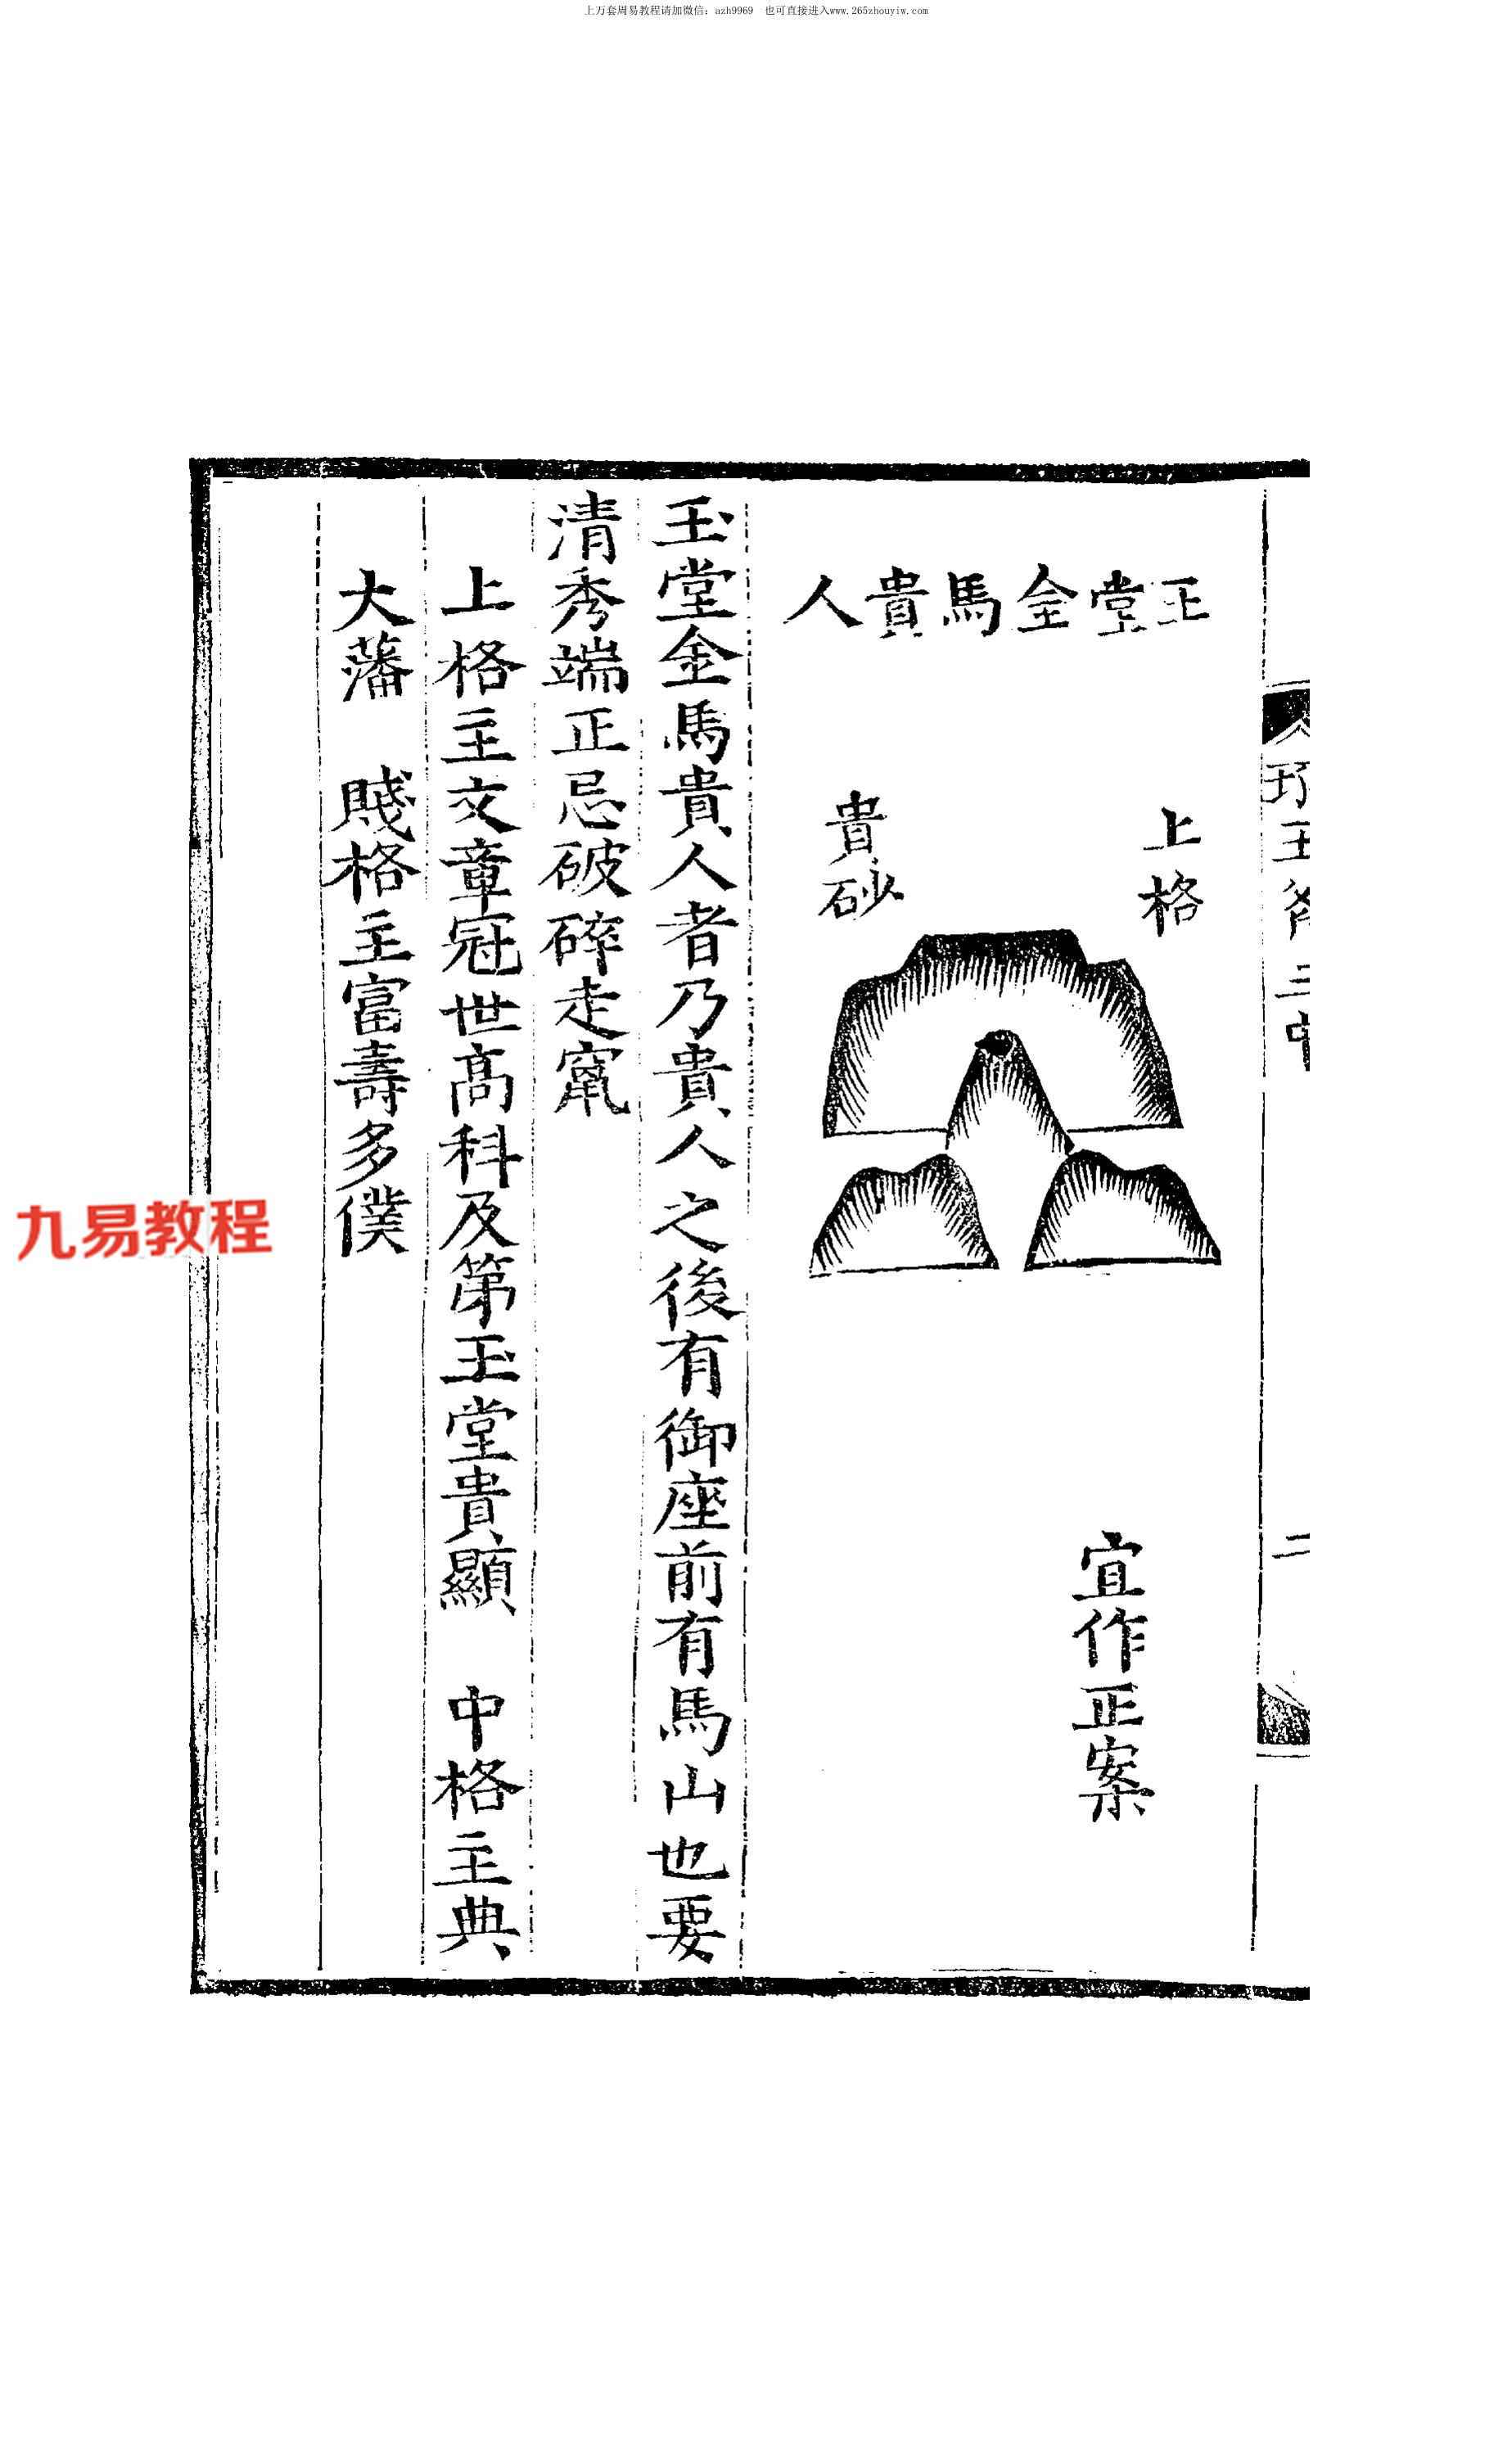 上万套周易教程请加微信：azh9969　也可直接进入www.265zhouyiw.com
玉堂金馬貴人
上格
貴砂
宜作正案
玉堂金馬貴人者乃貴人之後有御座前有馬山也要
清秀端正忌破碎走竄
上格主文章冠世高科及第玉堂貴顯　中格主典
大藩　賤格主富壽多僕
二
九易教程